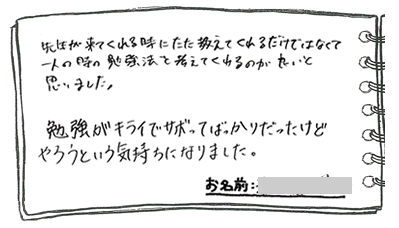 先生が来てくれる時にただ教えてくれるだけではなくて
一人の時の勉強法を考えてくれるのが良いと
思いました。
勉強がキライでサボってばっかりだったけど
やろうという気持ちになりました。
お名前: